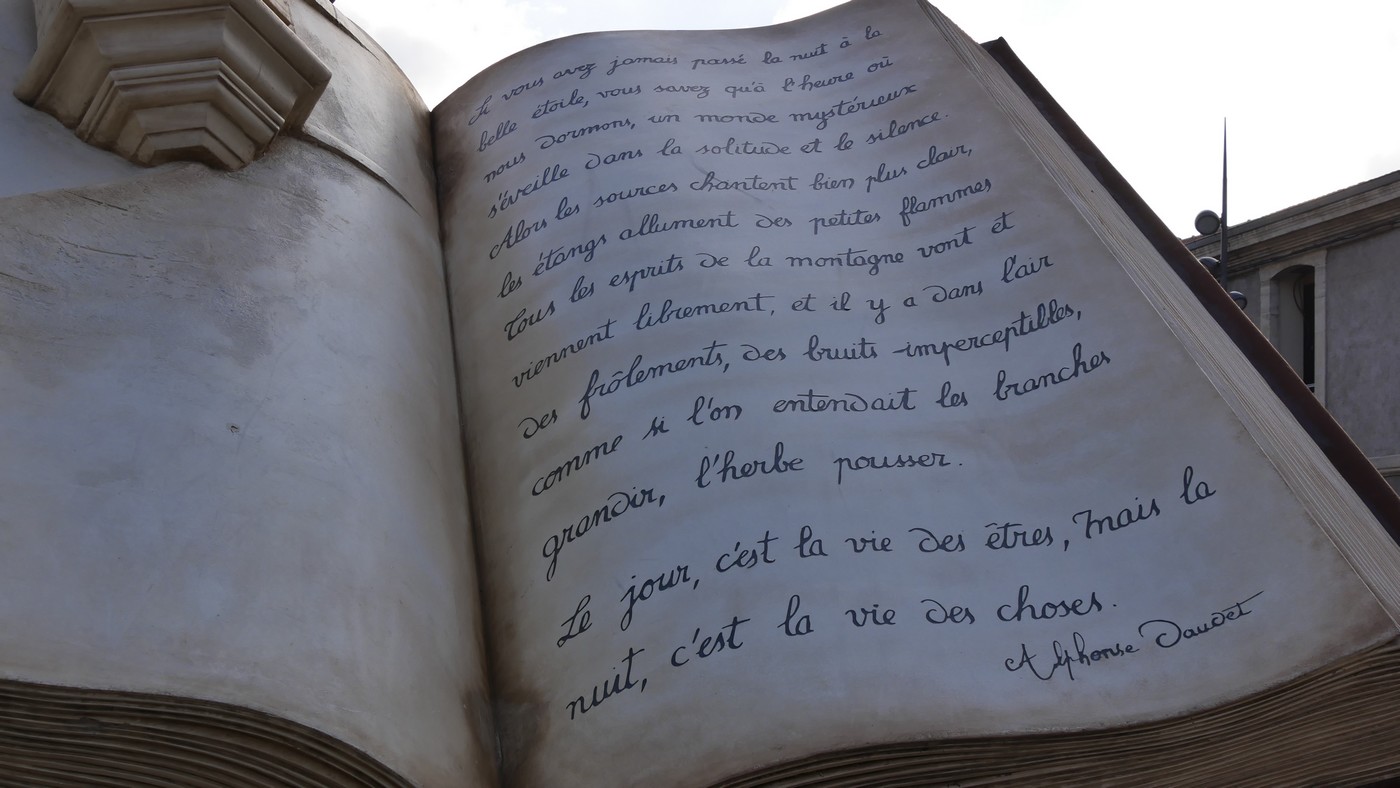 Si vous avez jamais passé la nuit à la
belle étoile, vous savez qu'à l'heure où
nous dormons, un monde mystérieux
s'éveille dans la solitude et le silence.
Alors les sources chantent bien plus clair,
les étangs allument des petites flammes
Tous les esprits de la montagne vont et
viennent librement, et il y a dans l'air
des frôlements, des bruits imperceptibles,
comme si l'on entendait les branches
grandir, l'herbe pousser.
Le jour, c'est la vie des êtres, mais la
nuit, c'est la vie des choses.
Alphonse Daudet